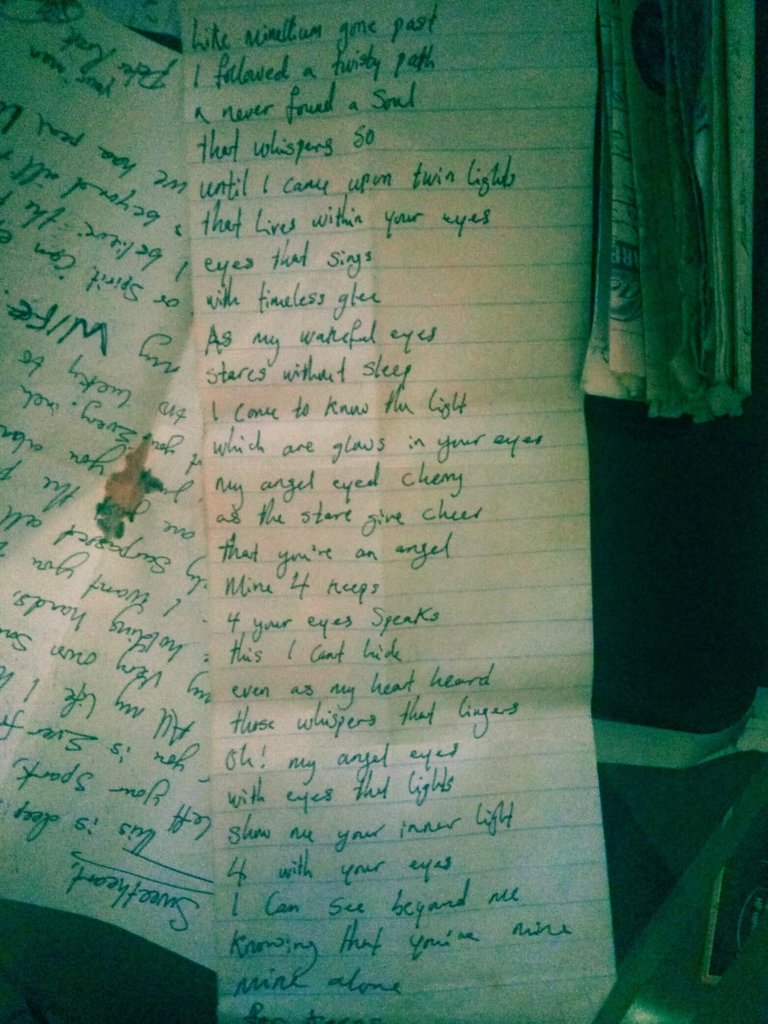 Like minellium gone past
I followed a twisty path
n never found a soul
that whispers so
until I came upon twin lights
that lives within your eyes
eyes that sings
with timeless glee
As my wakeful eyes
stares without sleep
I come to know the light
which are glows in your eyes
my angel eyed cherry
as the stare give cheer
that you're an angel
Mine 4 keeps
4 your eyes speaks
this I cant hide
even as my heart heard
those whispers that lingers
Oh! my angel eyes
with eyes that lights
show me your inner light
4 with your eyes
I can see beyond me
knowing that you're mine
mine alone
Sweetheart,
this is deep
left your spark,
you is ever
All my life I
my very own
holding hands,
I want you
surpassed all
are the
you
every inch
lucky to
my
WIFE.
or spirit can
I believe the
beyond all
we has real